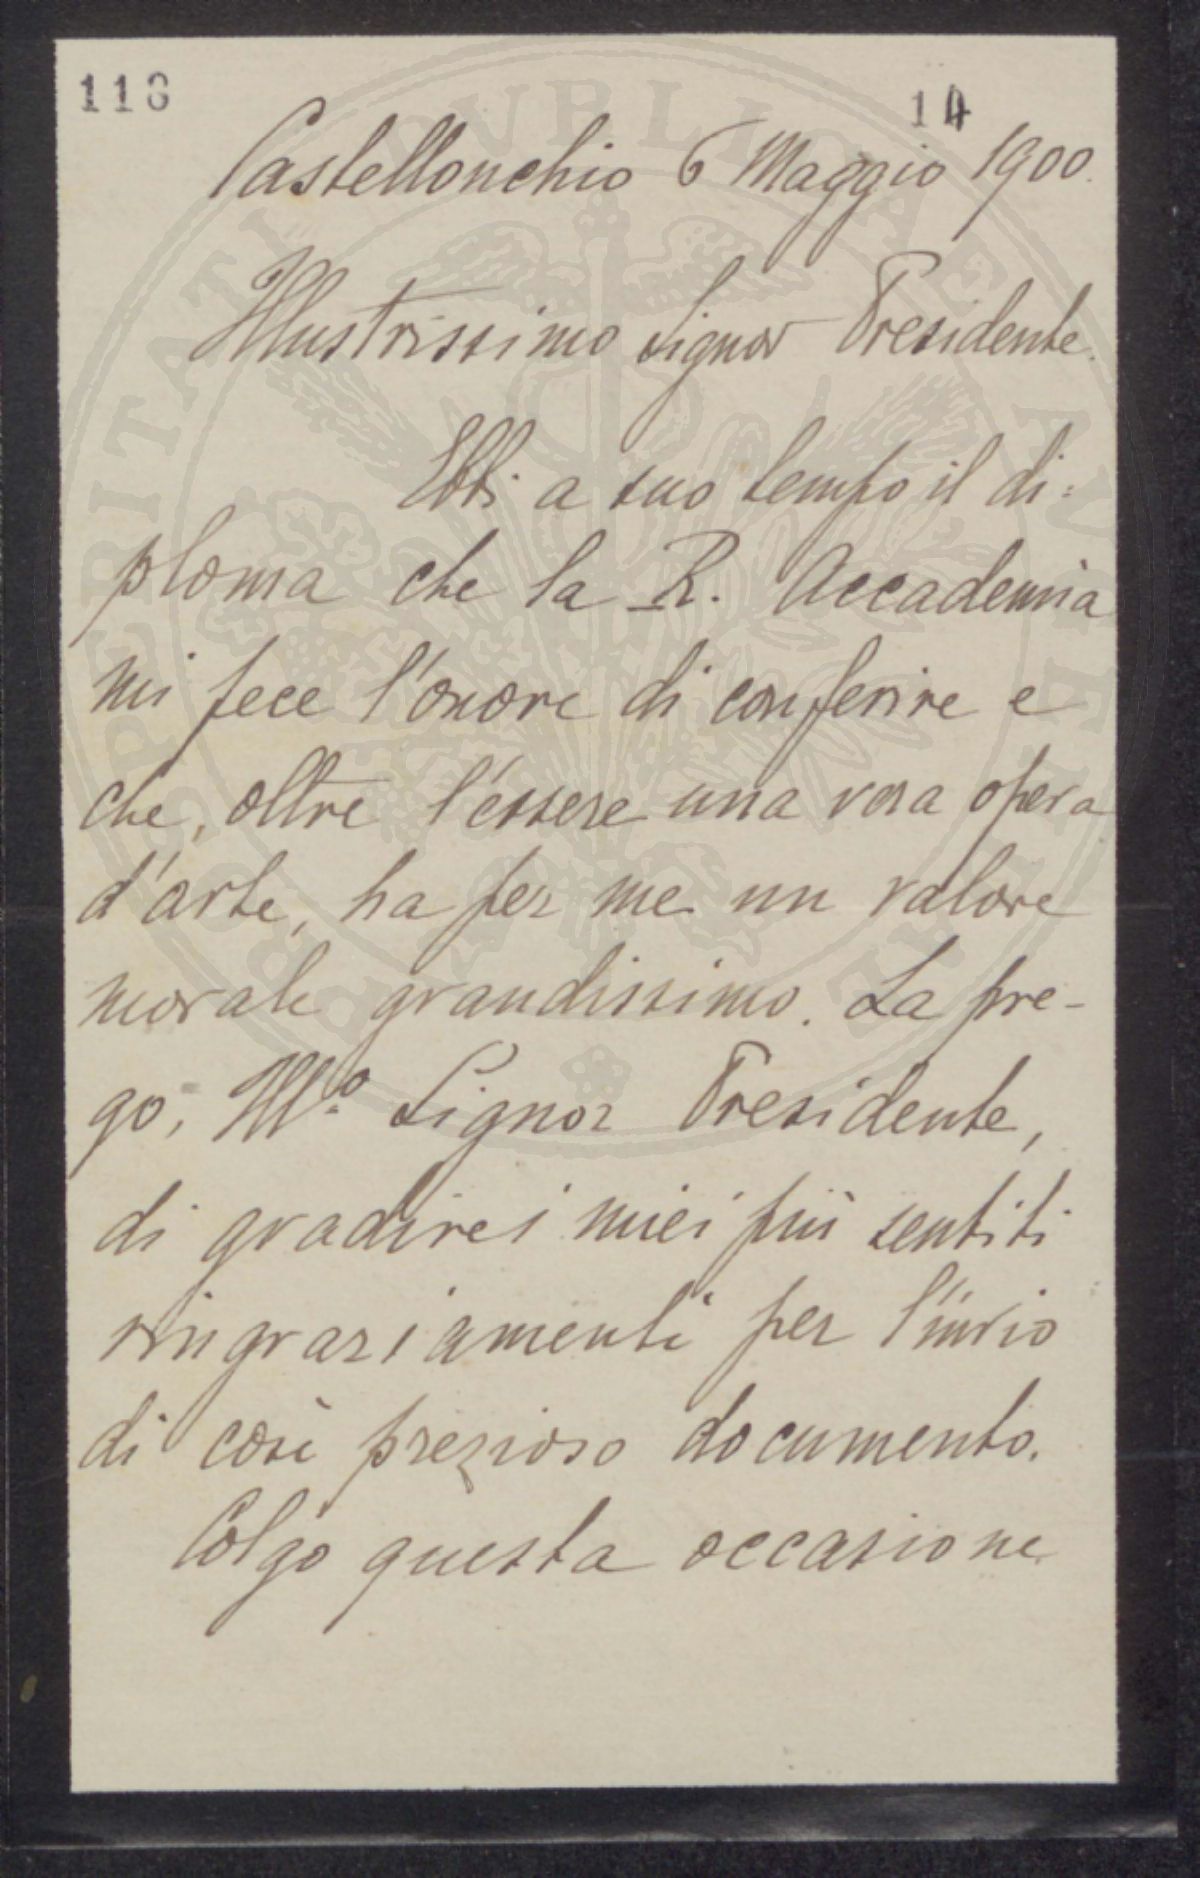 116 14
Castellonchio 6 Maggio 1900.
Illustrissimo Signor Presidente.
Ebbi a suo tempo il di=
ploma che la R. Accademia
mi fece l'onore di conferire e
che, oltre l'essere una vera opera
d'arte, ha per me un valore
morale grandissimo. La pre-
go, Ill.º Signor Presidente,
di gradire i miei più sentiti
ringraziamenti per l'invio
di così prezioso documento.
Colgo questa occasione